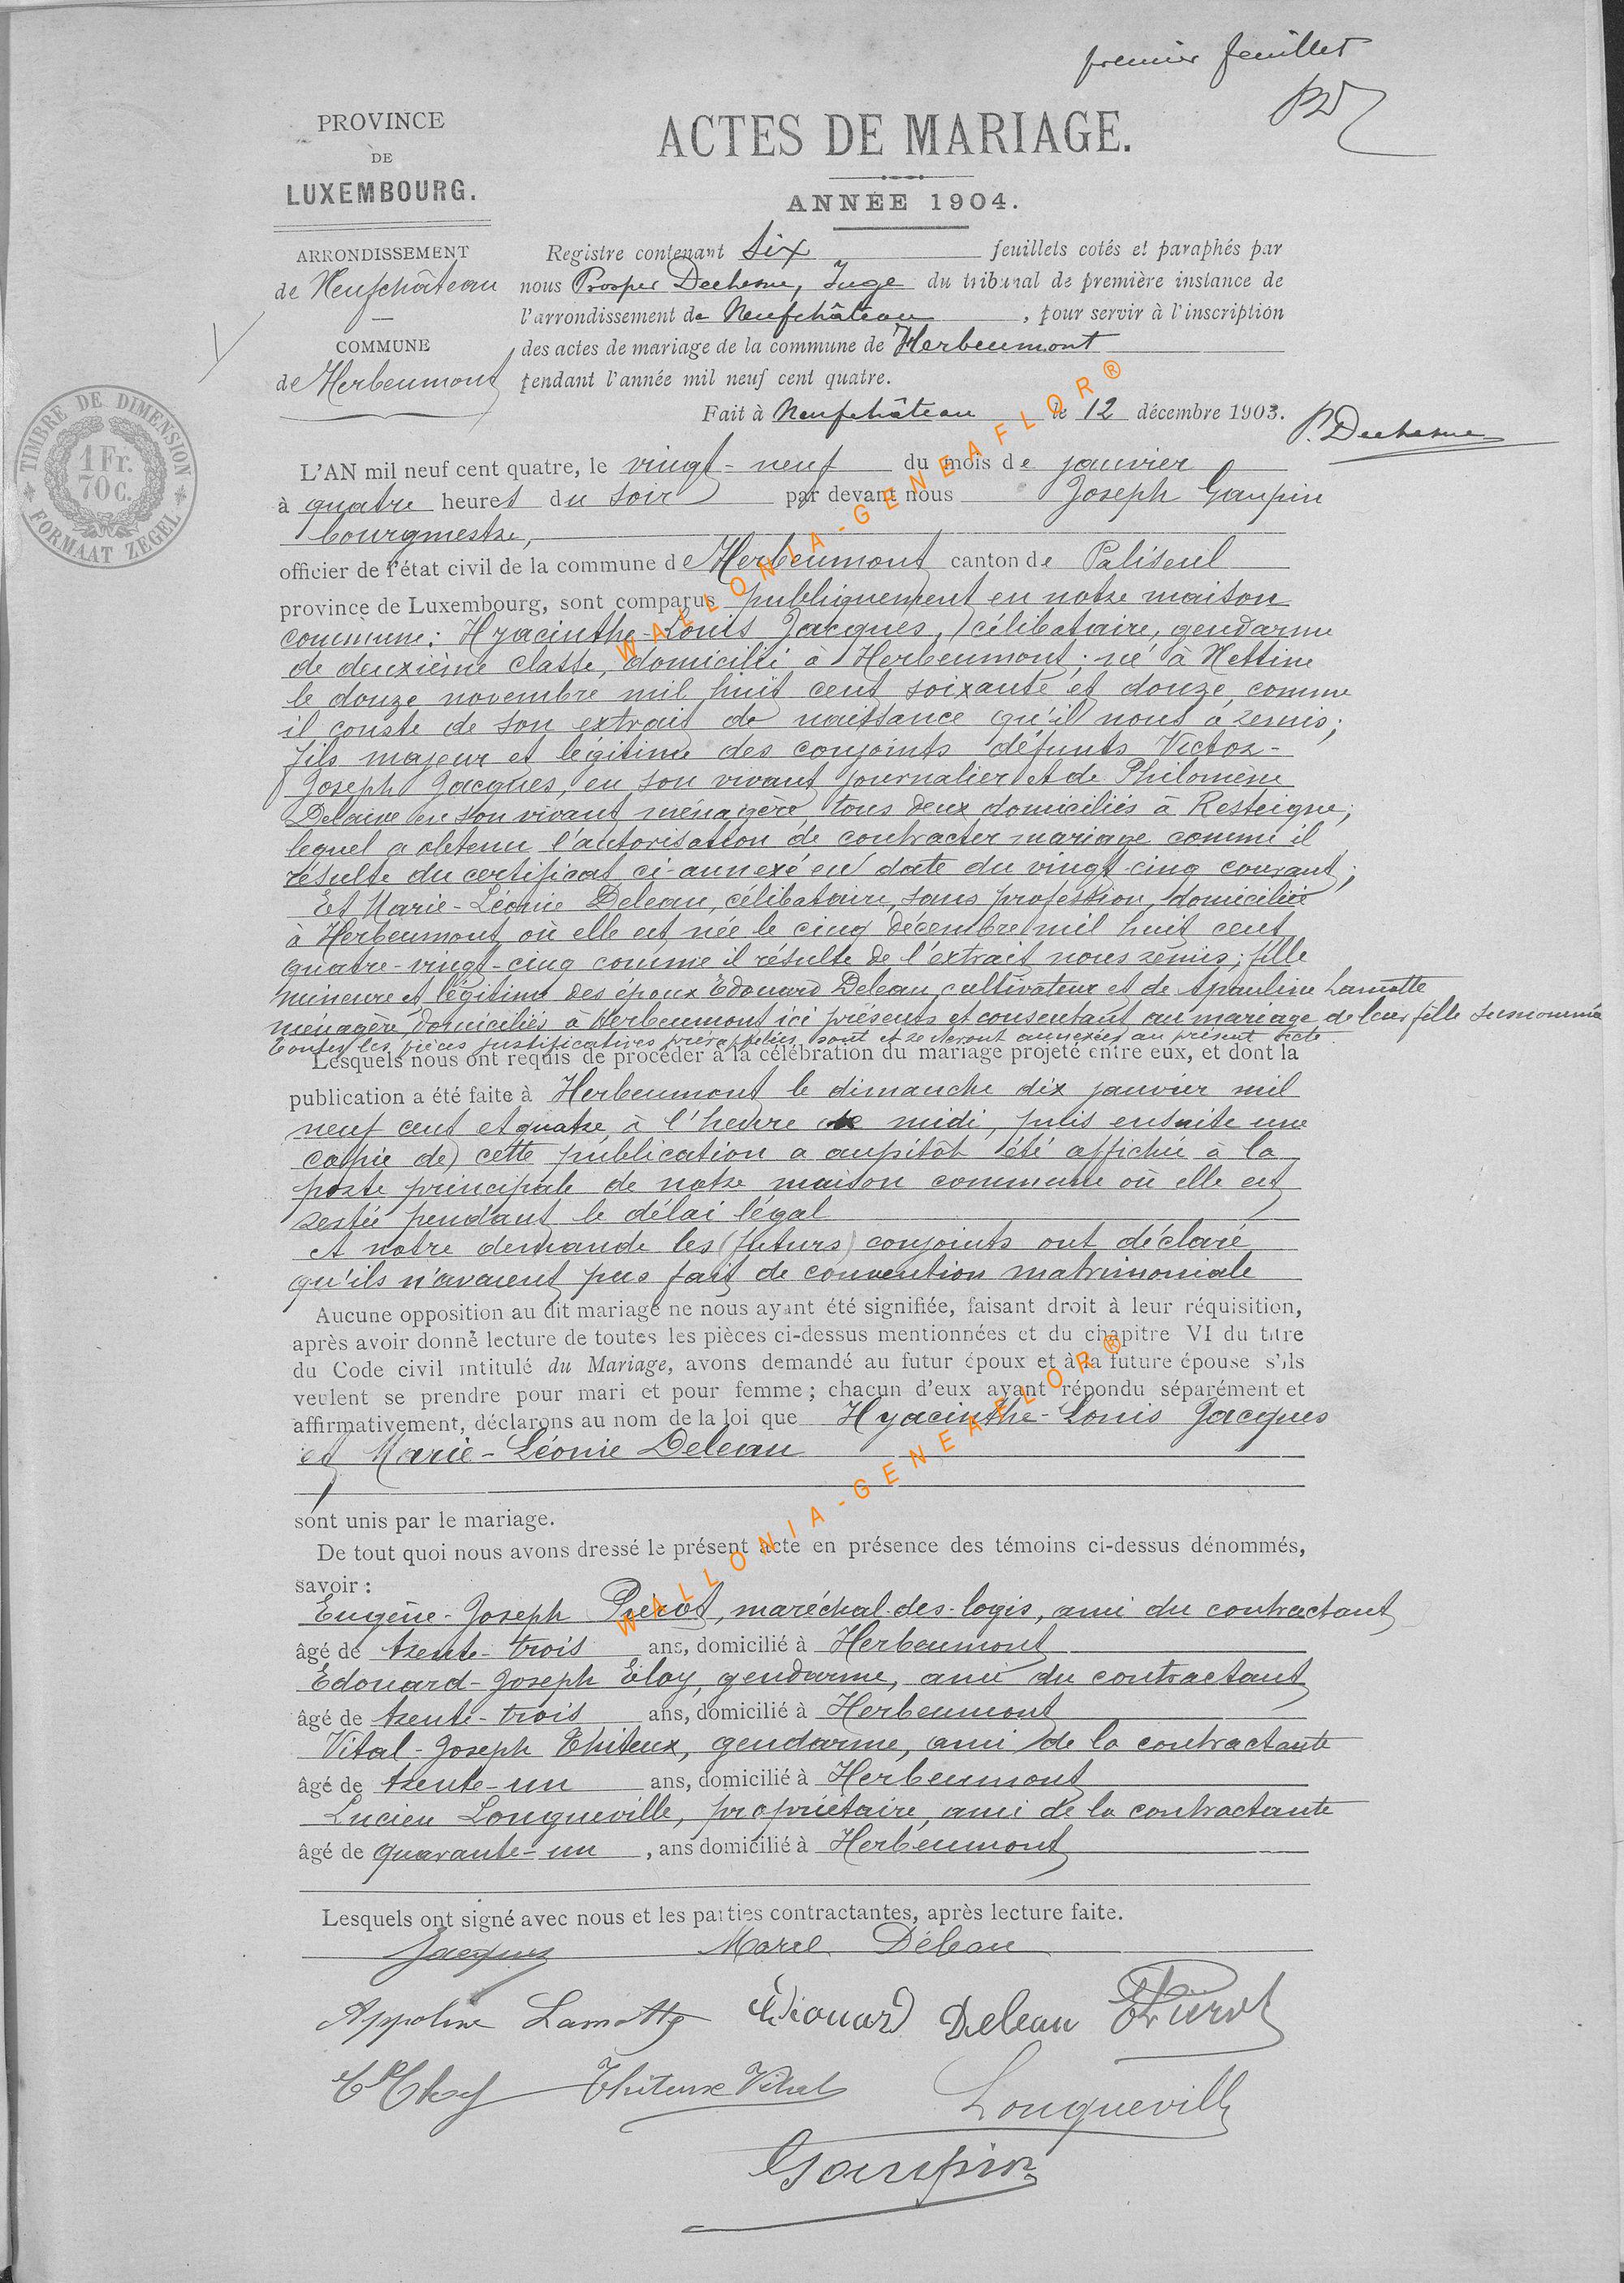 premier feuillet
PROVINCE
DE
LUXEMBOURG.
ACTES DE MARIAGE.
ANNÉE 1904.
ARRONDISSEMENT
de Neufchâteau
COMMUNE
de Herbeumont
Registre contenant six feuillets cotés et paraphés par
nous Prosper Duchesne, Juge du tribunal de première instance de
l'arrondissement de Neufchâteau, pour servir à l'inscription
des actes de mariage de la commune de Herbeumont
pendant l'année mil neuf cent quatre.
Fait à Neufchâteau le 12 décembre 1903.
P. Duchesne
TIMBRE DE DIMENSION
1 Fr.
70 c.
FORMAAT ZEGEL
L'AN mil neuf cent quatre, le vingt-neuf du mois de janvier
à quatre heures du soir par devant nous Joseph Gaupin
bourgmestre,
officier de l'état civil de la commune de Herbeumont canton de Paliseul
province de Luxembourg, sont comparus publiquement en notre maison
commune: Hyacinthe-Louis Jacques, célibataire, gendarme
de deuxième classe, domicilié à Herbeumont; né à Nettine
le douze novembre mil huit cent soixante et douze, comme
il conste de son extrait de naissance qu'il nous a remis;
fils majeur et légitime des conjoints défunts Victor-
Joseph Jacques, en son vivant journalier et de Philomène
Delaive en son vivant ménagère, tous deux domiciliés à Resteigne;
lequel a obtenu l'autorisation de contracter mariage comme il
résulte du certificat ci-annexé en date du vingt-cinq courant;
Et Marie-Léonie Deleau, célibataire, sans profession, domiciliée
à Herbeumont où elle est née le cinq décembre mil huit cent
quatre-vingt-cinq comme il résulte de l'extrait nous remis; fille
mineure et légitime des époux Edouard Deleau, cultivateur et de Apauline Lamotte
ménagère, domiciliés à Herbeumont ici présents et consentant au mariage de leur fille susnommée
toutes les pièces justificatives prérappelées sont et resteront annexées au présent acte.
Lesquels nous ont requis de procéder à la célébration du mariage projeté entre eux, et dont la
publication a été faite à Herbeumont le dimanche dix janvier mil
neuf cent et quatre, à l'heure de midi, puis ensuite une
copie de cette publication a aussitôt été affichée à la
porte principale de notre maison commune où elle est
restée pendant le délai légal
A notre demande les futurs conjoints ont déclaré
qu'ils n'avaient pas fait de convention matrimoniale
Aucune opposition au dit mariage ne nous ayant été signifiée, faisant droit à leur réquisition,
après avoir donné lecture de toutes les pièces ci-dessus mentionnées et du chapitre VI du titre
du Code civil intitulé du Mariage, avons demandé au futur époux et à la future épouse s'ils
veulent se prendre pour mari et pour femme; chacun d'eux ayant répondu séparément et
affirmativement, déclarons au nom de la loi que Hyacinthe-Louis Jacques
et Marie-Léonie Deleau
sont unis par le mariage.
De tout quoi nous avons dressé le présent acte en présence des témoins ci-dessus dénommés,
savoir:
Eugène-Joseph Pierot, maréchal-des-logis, ami du contractant
âgé de trente-trois ans, domicilié à Herbeumont
Edouard-Joseph Eloy, gendarme, ami du contractant
âgé de trente-trois ans, domicilié à Herbeumont
Vital-Joseph Thiteux, gendarme, ami de la contractante
âgé de trente-un ans, domicilié à Herbeumont
Lucien Longueville, propriétaire, ami de la contractante
âgé de quarante-un, ans domicilié à Herbeumont
Lesquels ont signé avec nous et les parties contractantes, après lecture faite.
Jacques Marie Déleau
Appoline Lamotte Edouard Deleau Pierot
Eloy Thiteux Vital Longueville
Gaupin
WALLONIA-GENEAFLOR®
WALLONIA-GENEAFLOR®